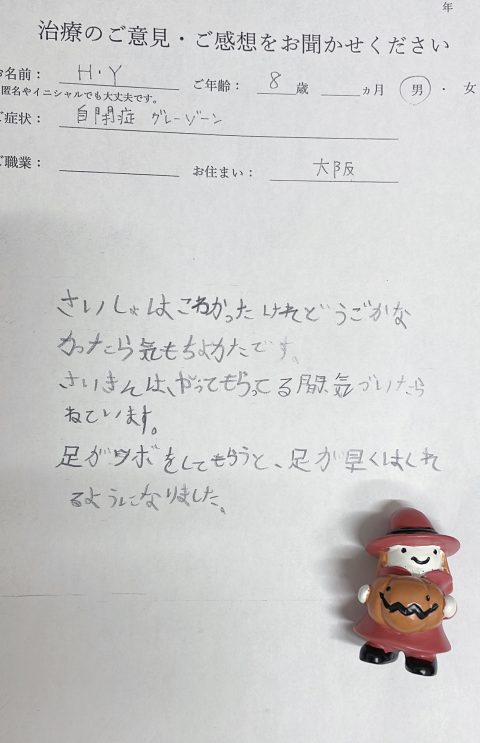 年
治療のご意見・ご感想をお聞かせください
お名前： H・Y ご年齢： 8 歳 ヵ月 男 ・ 女
匿名やイニシャルでも大丈夫です。
ご症状： 自閉症 グレーゾーン
ご職業： お住まい： 大阪
さいしょはこわかったけれどうごかな
かったら気もちよかたです。
さいきんは、やってもらってる間、気づいたら
ねています。
足がツボをしてもらうと、足が早くはしれ
るようになりました。